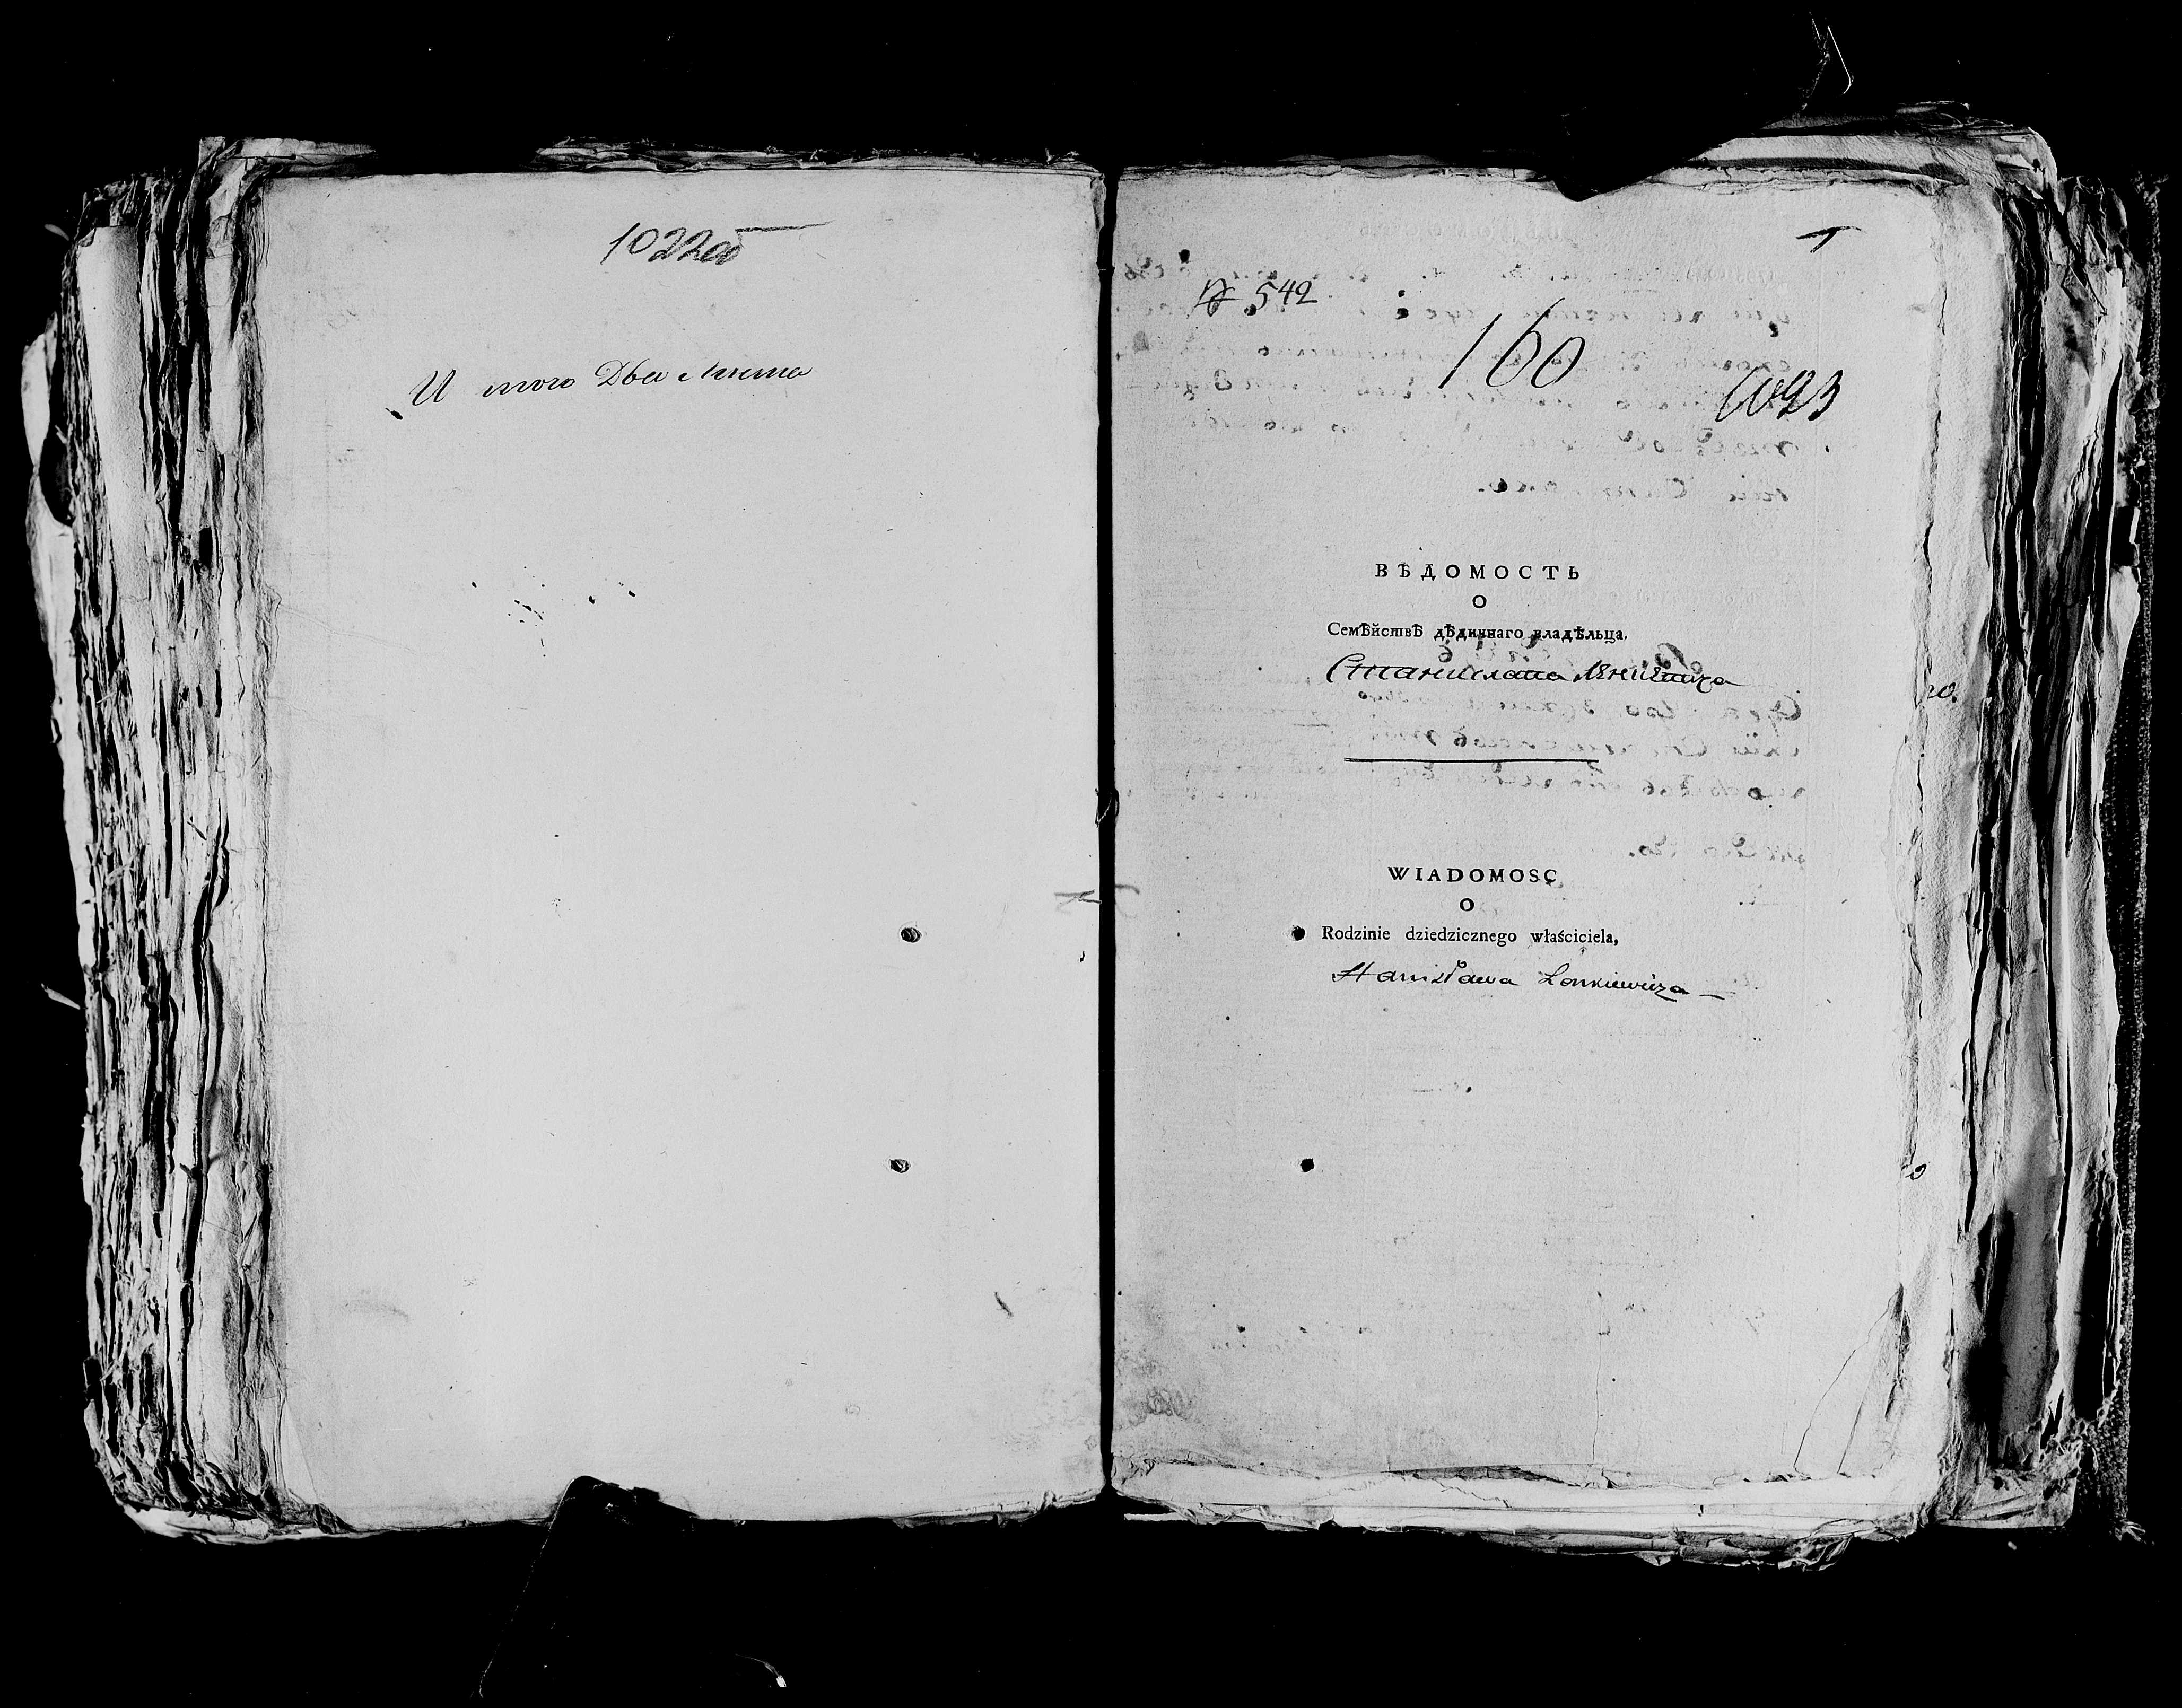 1022об
И того Два листа
1
№ 542
160
1023
ВѢДОМОСТЬ
О
Семѣйствѣ дѣдичнаго владѣльца,
Станислава
WIADOMOSC
O
Rodzinie dziedzicznego właściciela,
Stanisława Lonkiewicza